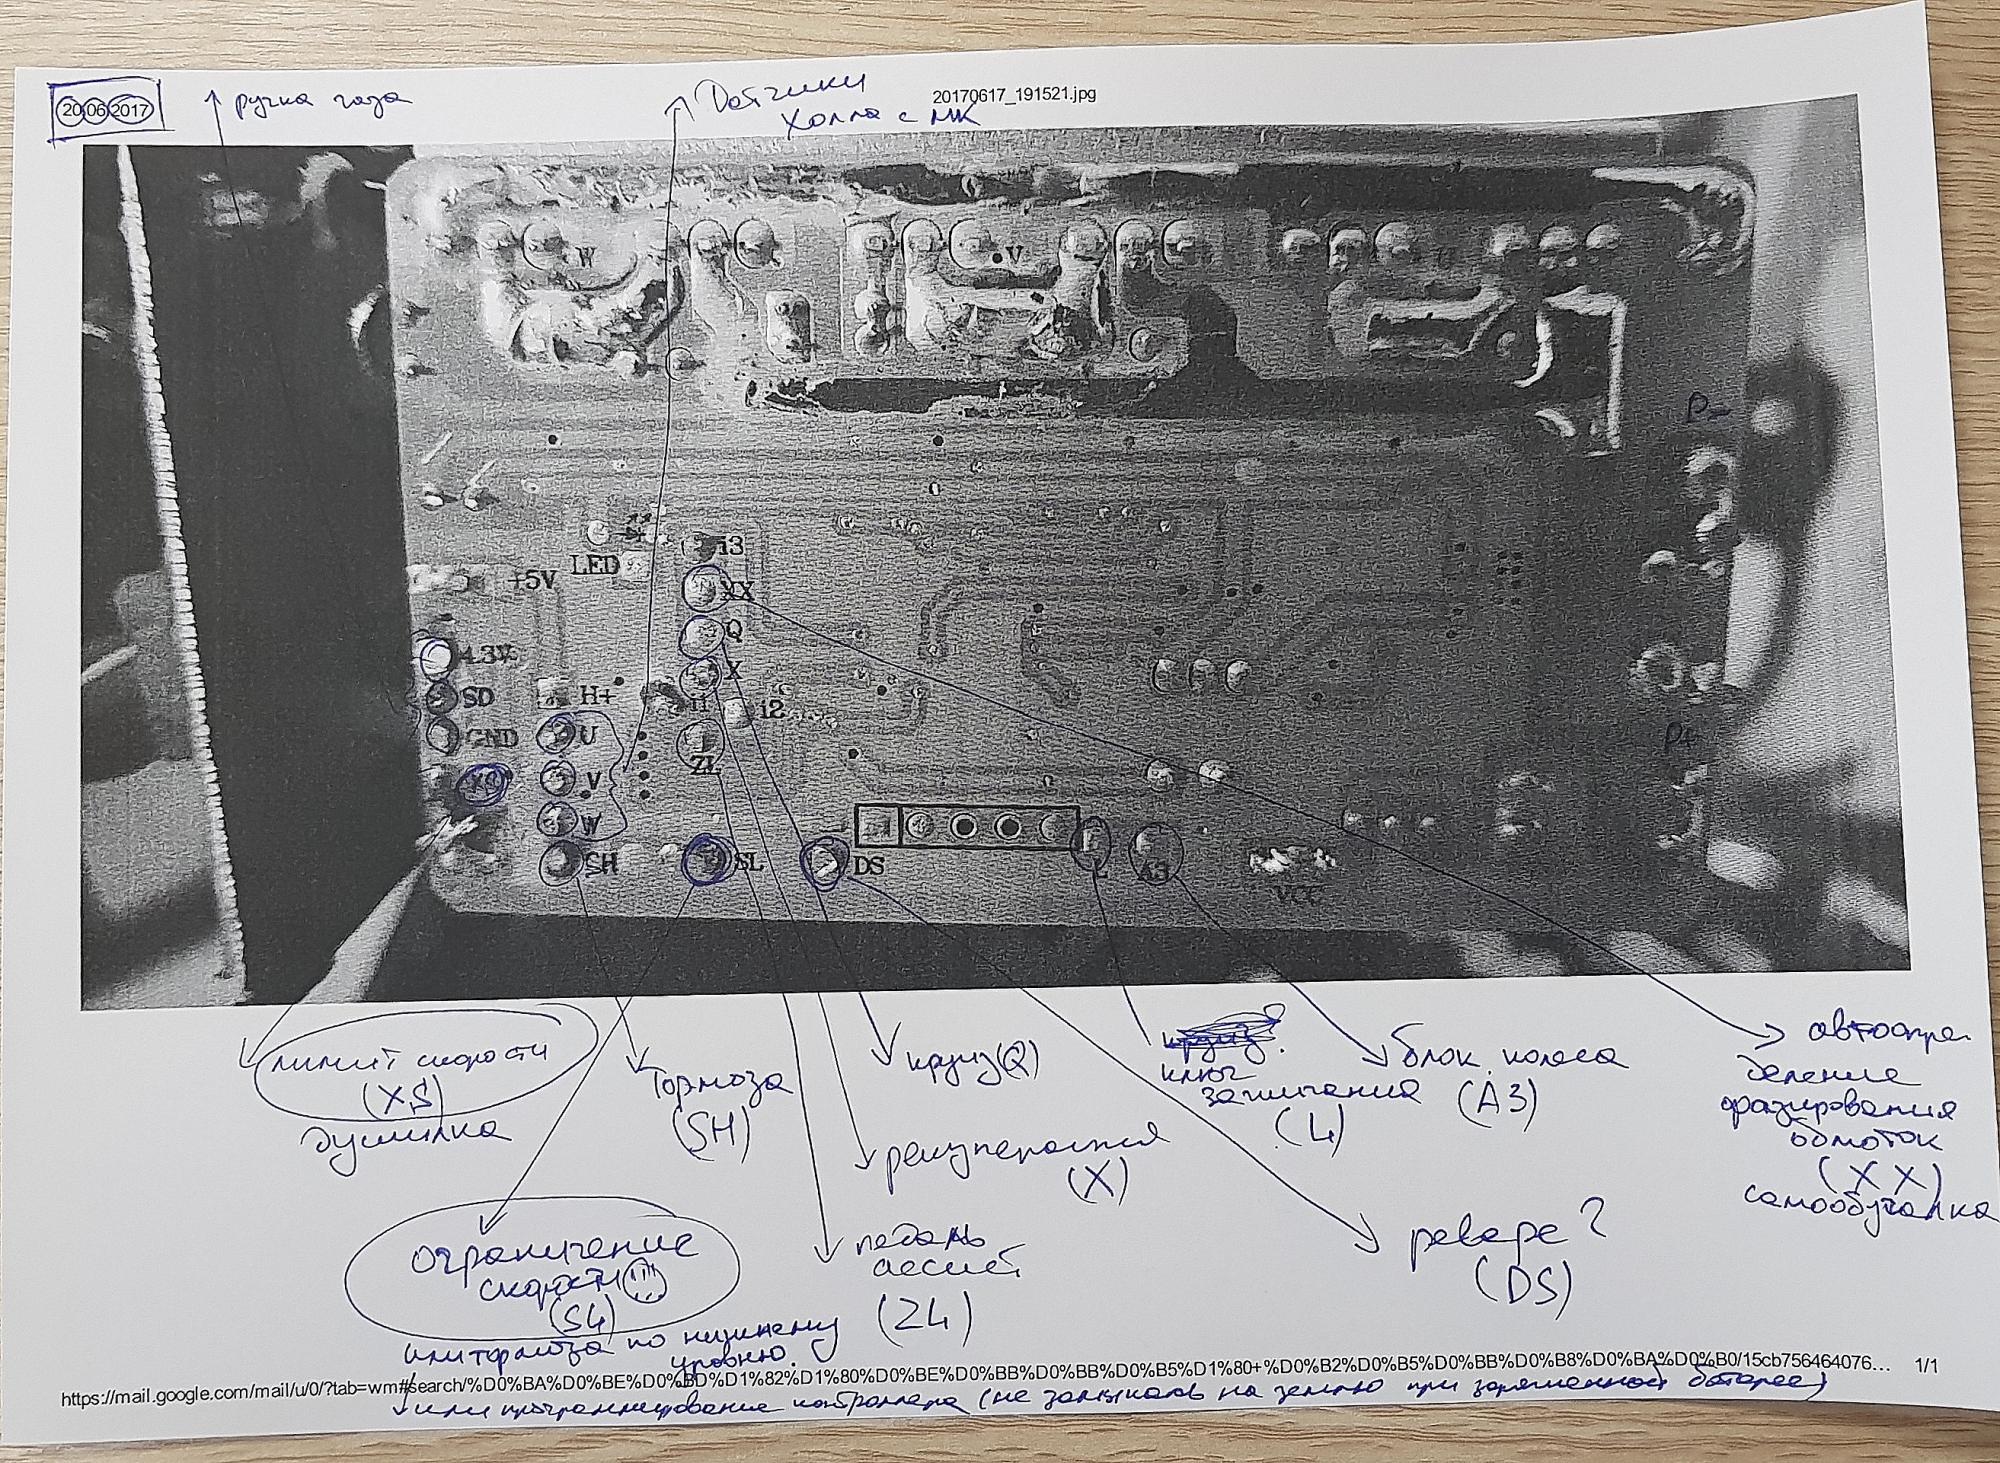 20.06.2017
ручка газа
Датчики
Холла с МК
20170617_191521.jpg
W
V
P-
i3
LED
XX
+5V
Q
4.3V
X
SD
H+
i1
i2
GND
U
ZL
P+
XS
V
W
SH
SL
DS
L
A3
VCC
лимит скорости
(XS)
душилка
Тормоза
(SH)
круиз(Q)
круиз.
ключ
зажигания
(L)
блок. колеса
(A3)
автоопре-
деление
фазирования
обмоток
(XX)
самообучалка
рекуперация
(X)
ограничение
скорости !!!
(SL)
или тормоза по нижнему
уровню.
педаль
ассист.
(ZL)
реверс?
(DS)
https://mail.google.com/mail/u/0/?tab=wm#search/%D0%BA%D0%BE%D0%BD%D1%82%D1%80%D0%BE%D0%BB%D0%BB%D0%B5%D1%80+%D0%B2%D0%B5%D0%BB%D0%B8%D0%BA%D0%B0/15cb756464076... 1/1
или программирование контроллера (не замыкать на землю при заряженной батарее)